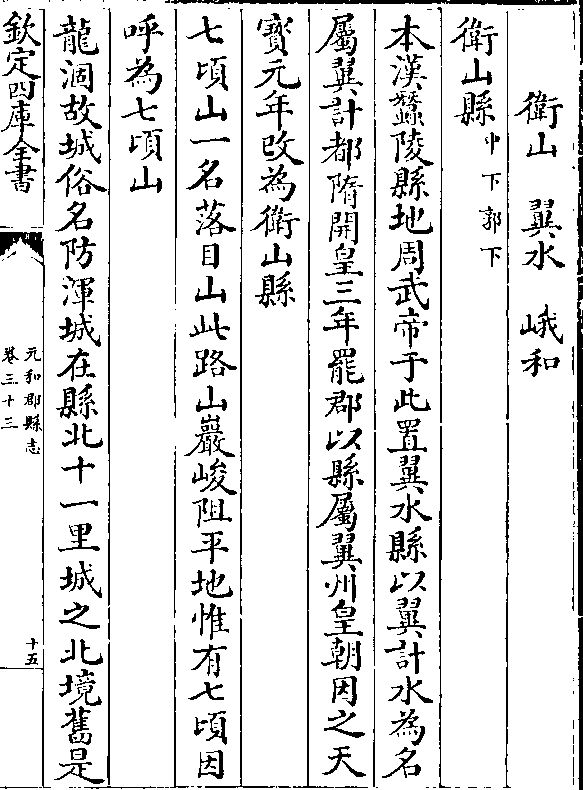 衛山　翼水　峨和
衛山縣中下郭下
本漢蠶陵縣地周武帝于此置翼水縣以翼計水為名
屬翼計郡隋開皇三年罷郡以縣屬翼州皇朝因之天
寳元年改為衛山縣
七頃山一名落目山此路山巖峻阻平地惟有七頃因
呼為七頃山
龍涸故城俗名防渾城在縣北十一里城之北境舊是
欽定四庫全書
元和郡縣志
卷三十三
十五